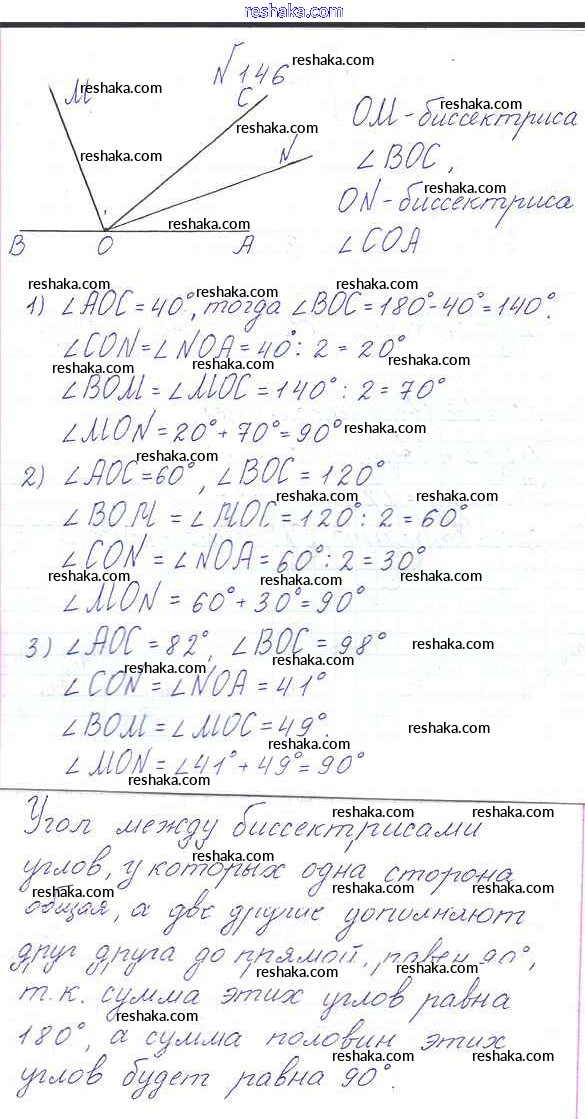 reshaka.com
N 146
M
C
N
B
O
A
OM - биссектриса
∠BOC,
ON - биссектриса
∠COA
1) ∠AOC = 40°, тогда ∠BOC = 180° - 40° = 140°.
∠CON = ∠NOA = 40° : 2 = 20°
∠BOM = ∠MOC = 140° : 2 = 70°
∠MON = 20° + 70° = 90°
2) ∠AOC = 60°, ∠BOC = 120°
∠BOM = ∠MOC = 120° : 2 = 60°
∠CON = ∠NOA = 60° : 2 = 30°
∠MON = 60° + 30° = 90°
3) ∠AOC = 82°, ∠BOC = 98°
∠CON = ∠NOA = 41°
∠BOM = ∠MOC = 49°.
∠MON = ∠41° + 49° = 90°
Угол между биссектрисами
углов, у которых одна сторона
общая, а две другие дополняют
друг друга до прямой, равен 90°,
т.к. сумма этих углов равна
180°, а сумма половин этих
углов будет равна 90°.